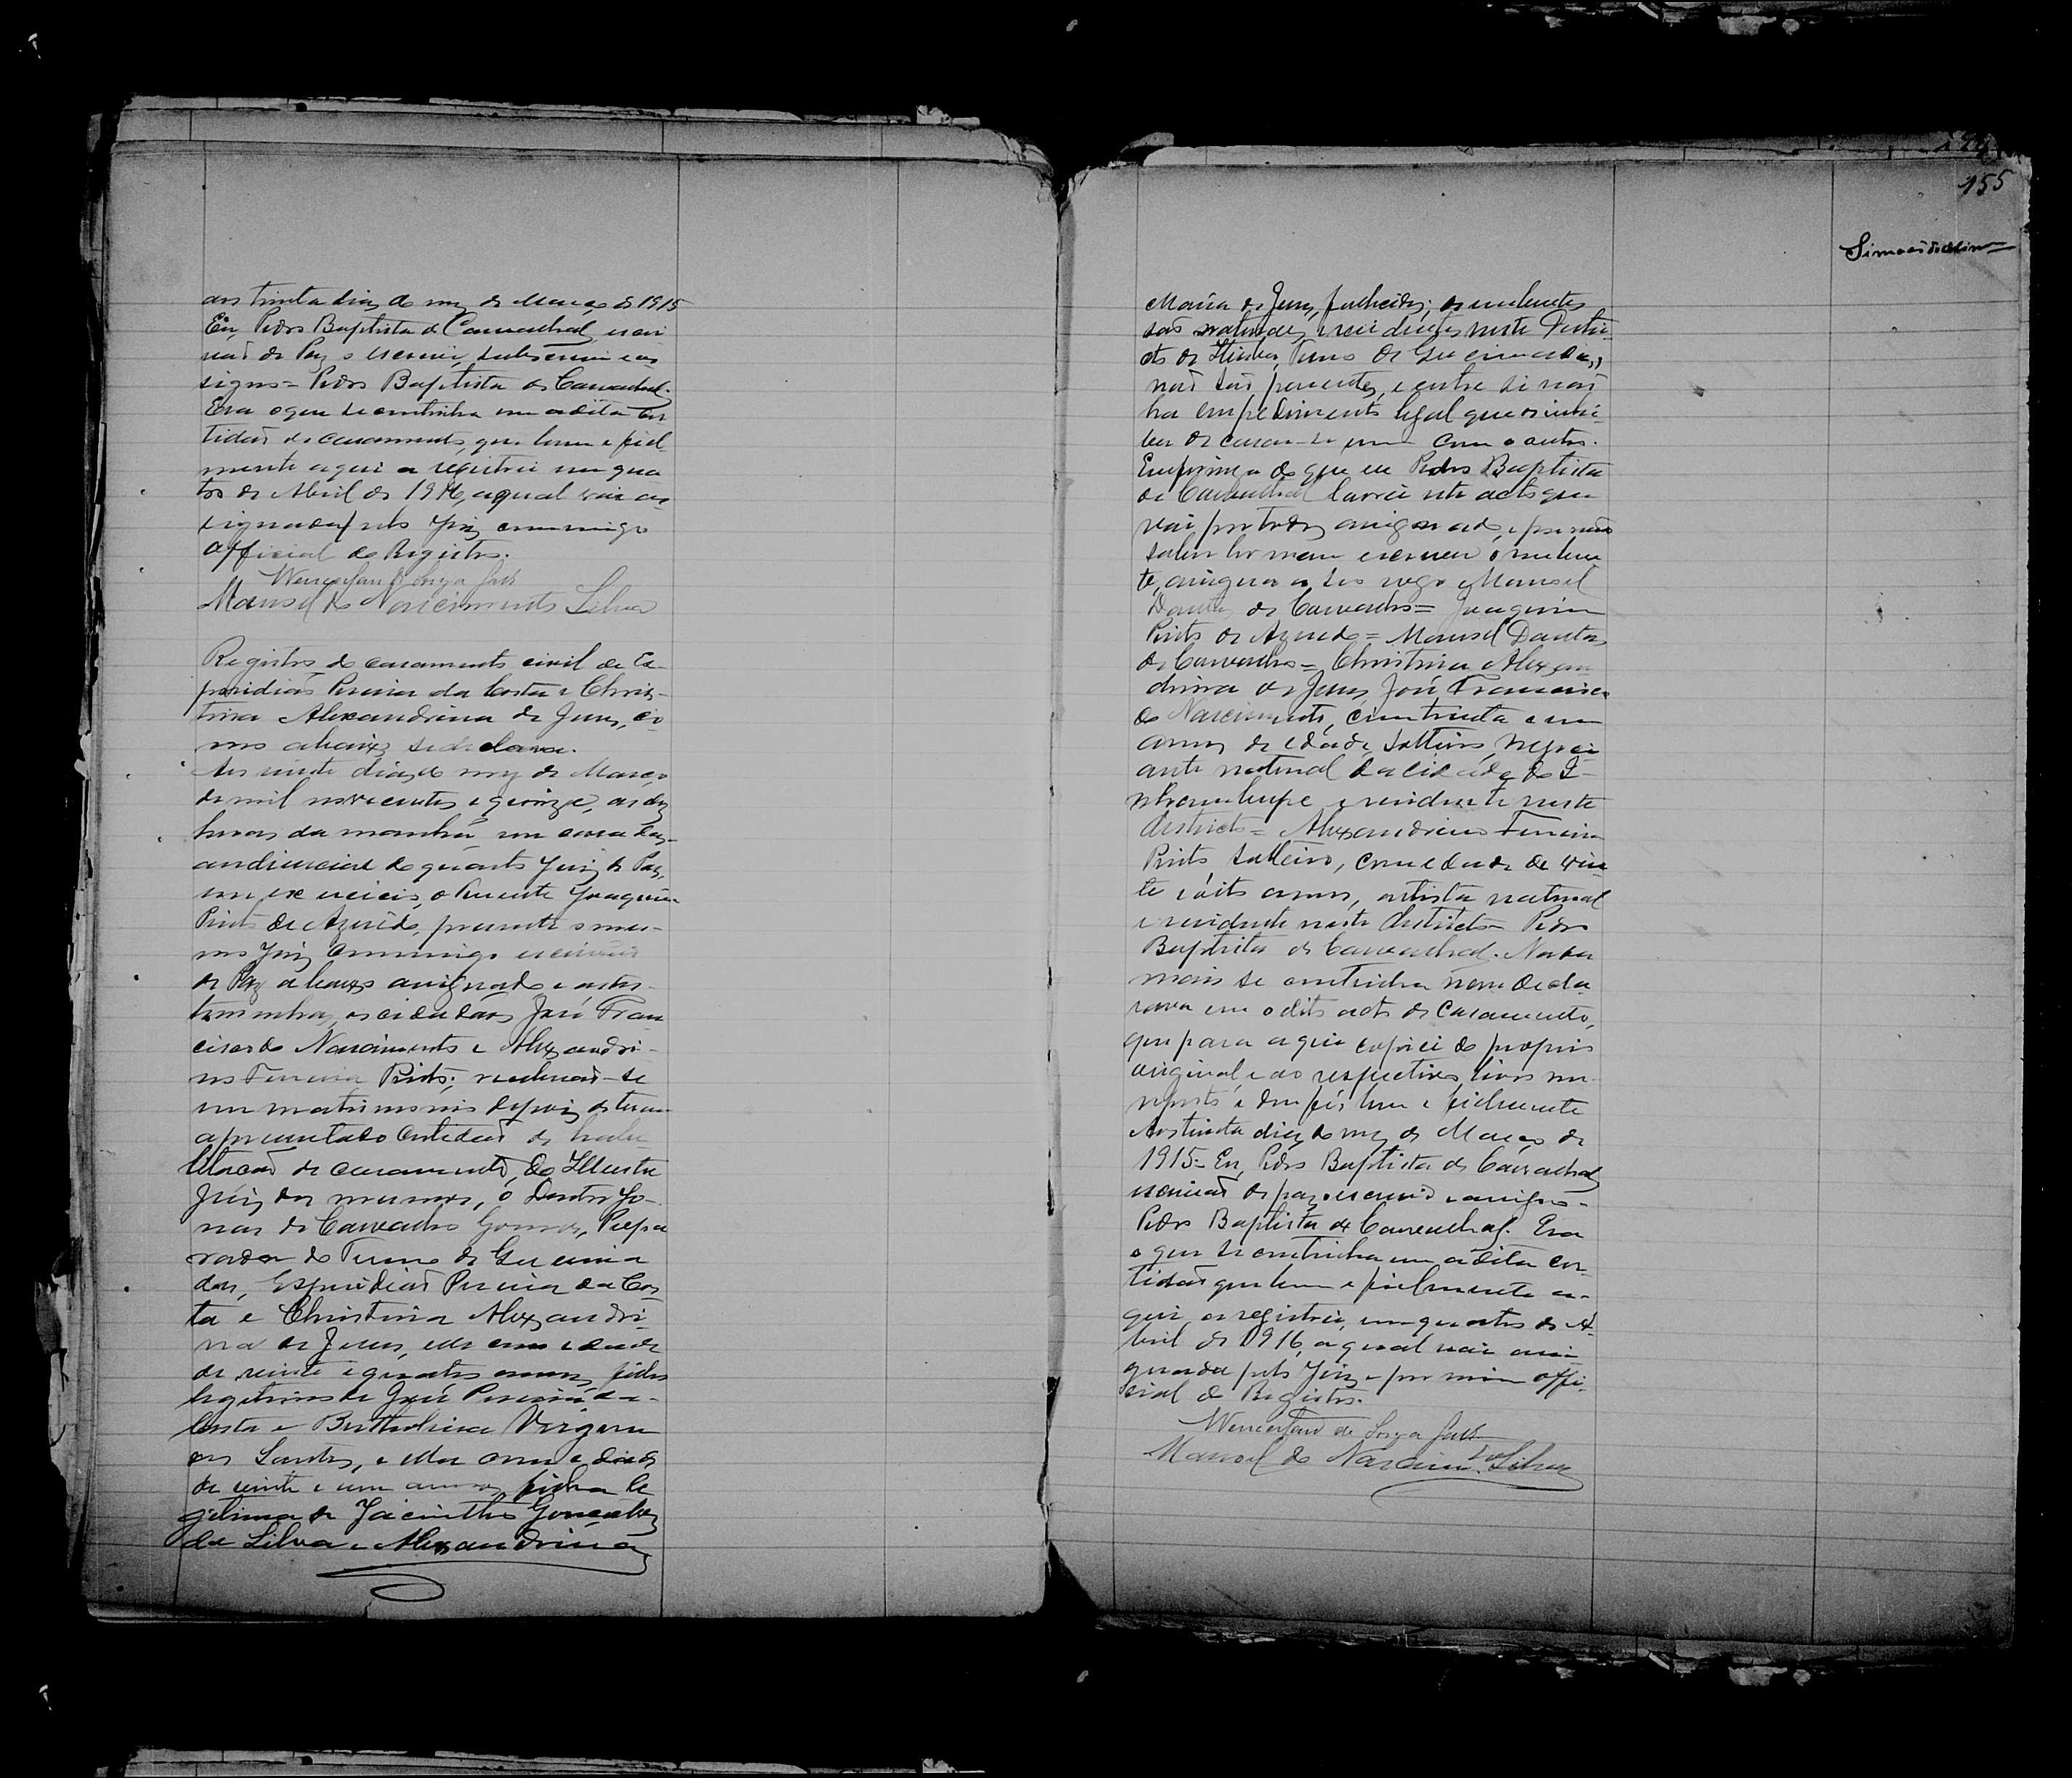 aos trinta dias do mez de Março de 1915
Eu, Pedro Baptista de Carvalhal, escri
vaõ de Paz o escrevi, subscrevi e as
signo = Pedro Baptista de Carvalhal.
Era o que se continha em a dita cer
tidaõ de casamento, que bem e fiel-
mente aqui a registrei em qua
tro de Abril de 1916, a qual vai as
signada pelo Juiz commigo
Official do Registro.
Manoel do Nascimento Silva
Registro de casamento civil de Es-
piridiaõ Pereira da Costa e Chris-
tina Alexandrina de Jesus, co-
mo abaixo se declara.
Aos vinte dias do mez de Março,
de mil novecentos e quinze, as dez
horas da manhã em casa das
audiencias do quarto Juiz de Paz,
em exercicio, o Tenente Joaquim
Pinto de Azevedo, presente o mes-
mo Juiz commigo escrivaõ
de Paz abaixo assignado e as tes-
temunhas, os cidadãos José Fran
cisco do Nascimento e Alexandri-
no Ferreira Pinto; receberaõ-se
em matrimonio depois de terem
apresentado certidaõ de habi
litacaõ de casamento, do Illustre
Juiz dos mesmos, o Doutor Jo-
nas de Carvalho Gomes, Prepa
rador do Termo de Queima
das, Espiridiaõ Pereira da Cos
ta e Christina Alexandri
na de Jesus, elle com idade
de vinte e quatro annos, filho
legitimo de José Pereira da
Costa e Bertholina Virgem
dos Santos, e ella com idade
de vinte e um annos, filha le
gitima de Jacintho Gonçalves
da Silva e Alexandrina
155
Maria de Jesus, fallecidos; os nubentes
saõ naturaes e residentes neste Distri
cto de Itiuba, Termo de Queimadas,
naõ saõ parentes, e entre si naõ
ha empedimento legal que os inhi-
ba de casar-se um com o outro.
Em firmeza do que eu Pedro Baptista
de Carvalhal lavrei este acto que
vai por todos assignado, e por naõ
saber ler nem escrever o nuben
te, assigna a seo rogo Manoel
Dantas de Carvalho = Joaquim
Pinto de Azevedo = Manoel Dantas
de Carvalho = Christina Alexan
drina de Jesus, José Francisco
do Nascimento, com trinta e um
annos de edade, solteiro, negoci
ante natural da cidade do I-
nhambupe e residente neste
districto = Alexandrino Ferreira
Pinto, solteiro, com edade de vin
te e oito annos, artista natural
e residente neste districto = Pedro
Baptista de Carvalhal. Nada
mais se continha nem decla
rava em o dito acto de casamento,
que para aqui copiei do proprio
original, e ao respectivo livro me
reporto e dou fé, bem e fielmente
Aos trinta dias do mez de Março de
1915 = Eu, Pedro Baptista de Carvalhal
escrivaõ de paz o escrevi e assigno =
Pedro Baptista de Carvalhal. Era
o que se continha em a dita cer
tidaõ que bem e fielmente a-
qui a registrei, em quatro de A-
bril de 1916, a qual vai assi-
gnada pelo Juiz e por mim offi-
cial do Registro.
Manoel do Nascim.to Silva